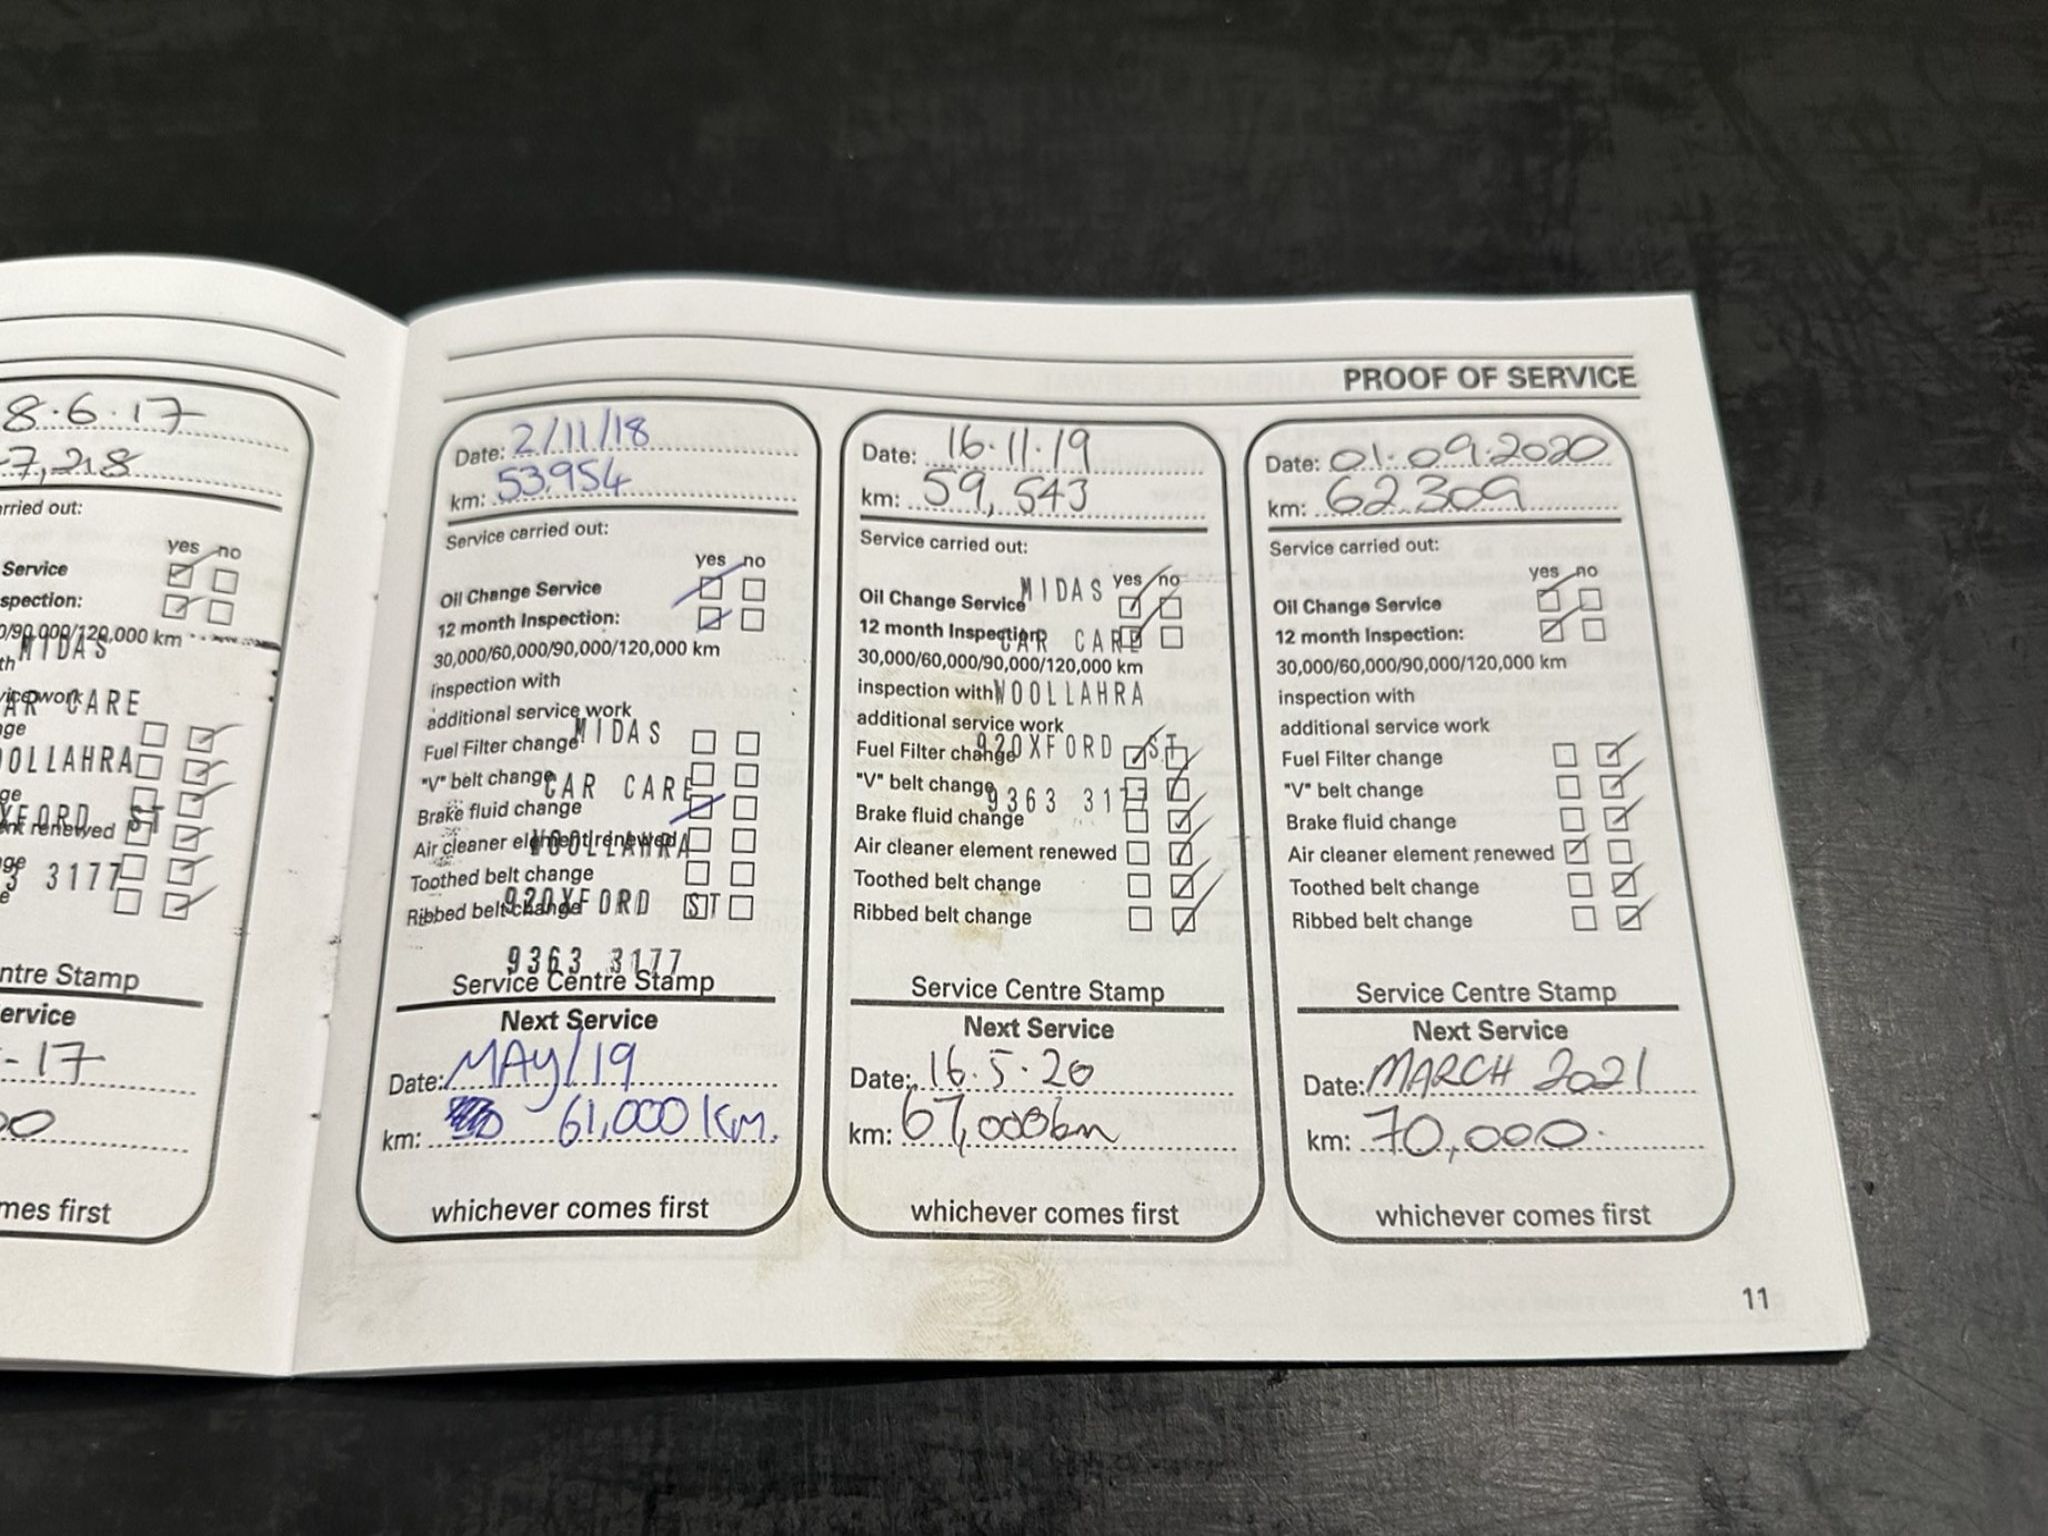 PROOF OF SERVICE
8.6.17
7,218
rried out:
yes no
Service
spection:
0/90,000/120,000 km
MIDAS
th
vice work
AR CARE
ge
OOLLAHRA
ge
XFORD ST
nt renewed
ge
3 3177
e
ntre Stamp
ervice
-17
00
mes first
Date: 2/11/18
km: 53,954
Service carried out:
yes no
Oil Change Service
12 month Inspection:
30,000/60,000/90,000/120,000 km
inspection with
additional service work
MIDAS
Fuel Filter change
"V" belt change
CAR CARE
Brake fluid change
Air cleaner element renewed
WOOLLAHRA
Toothed belt change
Ribbed belt change
92OXFORD ST
9363 3177
Service Centre Stamp
Next Service
Date: MAY/19
km: 61,000 Km.
whichever comes first
Date: 16.11.19
km: 59,543
Service carried out:
MIDAS
yes no
Oil Change Service
12 month Inspection:
CAR CARE
30,000/60,000/90,000/120,000 km
inspection with
WOOLLAHRA
additional service work
Fuel Filter change
92OXFORD ST
"V" belt change
9363 3177
Brake fluid change
Air cleaner element renewed
Toothed belt change
Ribbed belt change
Service Centre Stamp
Next Service
Date: 16.5.20
km: 67,000km
whichever comes first
Date: 01.09.2020
km: 62309
Service carried out:
yes no
Oil Change Service
12 month Inspection:
30,000/60,000/90,000/120,000 km
inspection with
additional service work
Fuel Filter change
"V" belt change
Brake fluid change
Air cleaner element renewed
Toothed belt change
Ribbed belt change
Service Centre Stamp
Next Service
Date: MARCH 2021
km: 70,000.
whichever comes first
11